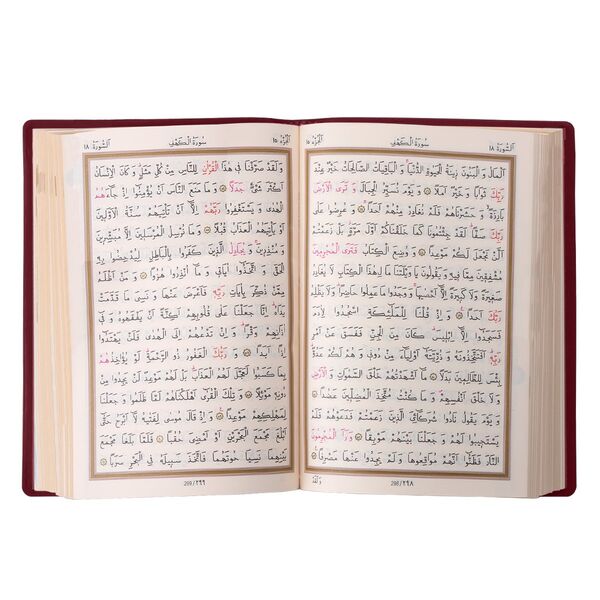 اَلسُّورَةُ ١٨
سُورَةُ الْكَهْفِ
اَلْجُزْءُ ١٥
اَلْمَالُ وَالْبَنُونَ زِينَةُ الْحَيٰوةِ الدُّنْيَا وَالْبَاقِيَاتُ الصَّالِحَاتُ خَيْرٌ عِنْدَ
رَبِّكَ ثَوَابًا وَخَيْرٌ اَمَلًا ۝ وَيَوْمَ نُسَيِّرُ الْجِبَالَ وَتَرَى الْاَرْضَ
بَارِزَةً وَحَشَرْنَاهُمْ فَلَمْ نُغَادِرْ مِنْهُمْ اَحَدًا ۝ وَعُرِضُوا عَلٰى
رَبِّكَ صَفًّا لَقَدْ جِئْتُمُونَا كَمَا خَلَقْنَاكُمْ اَوَّلَ مَرَّةٍ بَلْ زَعَمْتُمْ
اَلَّنْ نَجْعَلَ لَكُمْ مَوْعِدًا ۝ وَوُضِعَ الْكِتَابُ فَتَرَى الْمُجْرِمِينَ
مُشْفِقِينَ مِمَّا فِيهِ وَيَقُولُونَ يَا وَيْلَتَنَا مَالِ هٰذَا الْكِتَابِ لَا يُغَادِرُ
صَغِيرَةً وَلَا كَبِيرَةً اِلَّا اَحْصٰيهَا وَوَجَدُوا مَا عَمِلُوا حَاضِرًا وَلَا يَظْلِمُ
رَبُّكَ اَحَدًا ۝ وَاِذْ قُلْنَا لِلْمَلٰئِكَةِ اسْجُدُوا لِاٰدَمَ
فَسَجَدُوا اِلَّا اِبْلِيسَ كَانَ مِنَ الْجِنِّ فَفَسَقَ عَنْ اَمْرِ
رَبِّهِ اَفَتَتَّخِذُونَهُ وَذُرِّيَّتَهُ اَوْلِيَاءَ مِنْ دُونِي وَهُمْ لَكُمْ عَدُوٌّ
بِئْسَ لِلظَّالِمِينَ بَدَلًا ۝ مَا اَشْهَدْتُهُمْ خَلْقَ السَّمٰوَاتِ وَالْاَرْضِ
وَلَا خَلْقَ اَنْفُسِهِمْ وَمَا كُنْتُ مُتَّخِذَ الْمُضِلِّينَ عَضُدًا ۝
وَيَوْمَ يَقُولُ نَادُوا شُرَكَائِيَ الَّذِينَ زَعَمْتُمْ فَدَعَوْهُمْ فَلَمْ
يَسْتَجِيبُوا لَهُمْ وَجَعَلْنَا بَيْنَهُمْ مَوْبِقًا ۝ وَرَاَ الْمُجْرِمُونَ
النَّارَ فَظَنُّوا اَنَّهُمْ مُوَاقِعُوهَا وَلَمْ يَجِدُوا عَنْهَا مَصْرِفًا ۝
298/٢٩٨
وَلَقَدْ
اَلْجُزْءُ ١٥
سُورَةُ الْكَهْفِ
اَلسُّورَةُ ١٨
وَلَقَدْ صَرَّفْنَا فِي هٰذَا الْقُرْاٰنِ لِلنَّاسِ مِنْ كُلِّ مَثَلٍ وَكَانَ الْاِنْسَانُ
اَكْثَرَ شَيْءٍ جَدَلًا ۝ وَمَا مَنَعَ النَّاسَ اَنْ يُؤْمِنُوا اِذْ جَاءَهُمُ
الْهُدٰى وَيَسْتَغْفِرُوا رَبَّهُمْ اِلَّا اَنْ تَأْتِيَهُمْ سُنَّةُ الْاَوَّلِينَ
اَوْ يَأْتِيَهُمُ الْعَذَابُ قُبُلًا ۝ وَمَا نُرْسِلُ الْمُرْسَلِينَ اِلَّا مُبَشِّرِينَ
وَمُنْذِرِينَ وَيُجَادِلُ الَّذِينَ كَفَرُوا بِالْبَاطِلِ لِيُدْحِضُوا بِهِ
الْحَقَّ وَاتَّخَذُوا اٰيَاتِي وَمَا اُنْذِرُوا هُزُوًا ۝ وَمَنْ اَظْلَمُ
مِمَّنْ ذُكِّرَ بِاٰيَاتِ رَبِّهِ فَاَعْرَضَ عَنْهَا وَنَسِيَ مَا قَدَّمَتْ
يَدَاهُ اِنَّا جَعَلْنَا عَلٰى قُلُوبِهِمْ اَكِنَّةً اَنْ يَفْقَهُوهُ وَفِي
اٰذَانِهِمْ وَقْرًا وَاِنْ تَدْعُهُمْ اِلَى الْهُدٰى فَلَنْ يَهْتَدُوا
اِذًا اَبَدًا ۝ وَرَبُّكَ الْغَفُورُ ذُو الرَّحْمَةِ لَوْ يُؤَاخِذُهُمْ
بِمَا كَسَبُوا لَعَجَّلَ لَهُمُ الْعَذَابَ بَلْ لَهُمْ مَوْعِدٌ لَنْ يَجِدُوا مِنْ
دُونِهِ مَوْئِلًا ۝ وَتِلْكَ الْقُرٰى اَهْلَكْنَاهُمْ لَمَّا ظَلَمُوا وَجَعَلْنَا
لِمَهْلِكِهِمْ مَوْعِدًا ۝ وَاِذْ قَالَ مُوسٰى لِفَتٰيهُ لَا اَبْرَحُ حَتّٰى
اَبْلُغَ مَجْمَعَ الْبَحْرَيْنِ اَوْ اَمْضِيَ حُقُبًا ۝ فَلَمَّا بَلَغَا مَجْمَعَ
بَيْنِهِمَا نَسِيَا حُوتَهُمَا فَاتَّخَذَ سَبِيلَهُ فِي الْبَحْرِ سَرَبًا ۝
299/٢٩٩